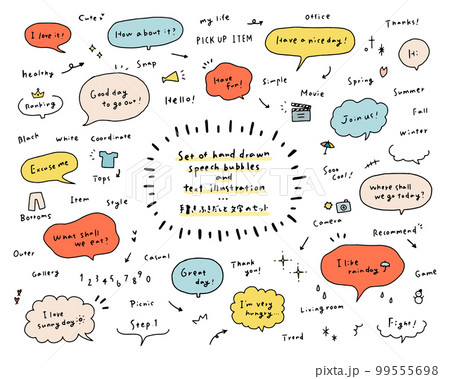 I love it!
Cute
How about it?
my life
PICK UP ITEM
Office
Have a nice day!
Thanks!
Hi
healthy
Snap
Ranking
Good day
to go out!
Hello!
Have
fun!
Simple
Movie
Spring
Summer
Join us!
Fall
winter
Black
White
Coordinate
Excuse me
Tops
Set of hand drawn
speech bubbles
and
text illustration
...
手描きふきだしと文字のセット
Sooo
Cool!
Where shall
we go today?
Bottoms
Item
Style
Camera
What shall
we eat?
Recommend
Outer
Gallery
Casual
1 2 3 4 5 6 7 8 9 0
Great
day!
Thank
you!
I like
rainday
Game
I love
sunny day
Picnic
Step 1
I'm very
hungry...
Livingroom
Trend
Fight!
PIXTA
pixta.jp - 99555698